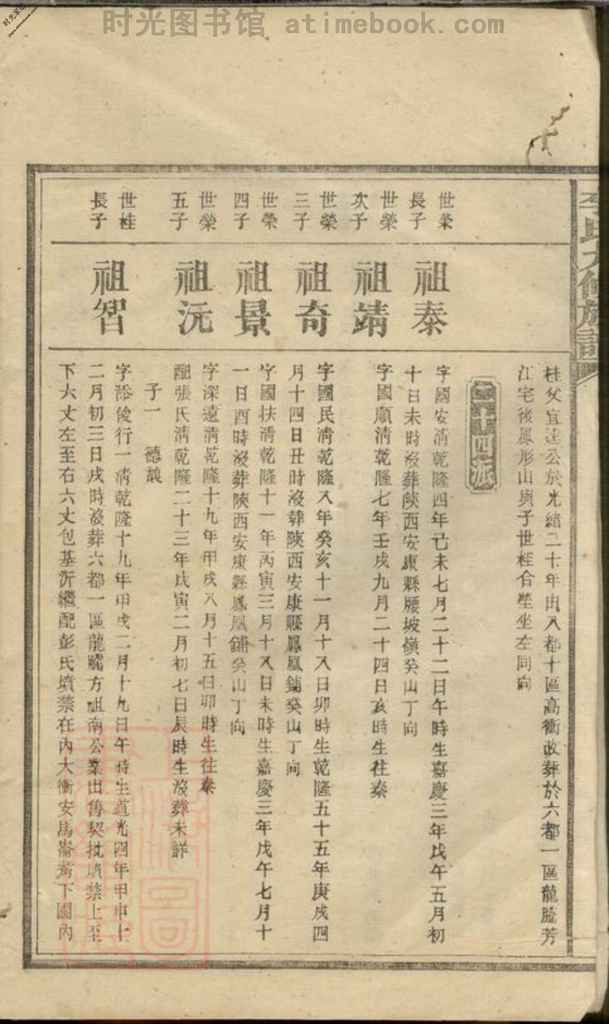 时光图书馆 atimebook.com
氏 修族譜
桂父宜 公於光緒二十年由八都十區高衝改葬於六都一區龍騰芳
江宅後鳳形山與子世桂合塋坐左同向
四派
世榮長子
祖泰
字國安清乾隆四年己未七月二十二日午時生嘉慶三年戊午五月初
十日未時沒葬陝西安康縣腰坡嶺癸山丁向
世榮次子
祖靖
字國順清乾隆七年壬戌九月二十四日亥時生往秦
世榮三子
祖奇
字國民清乾隆八年癸亥十一月十八日卯時生乾隆五十五年庚戌四
月十四日丑時沒葬陝西安康縣鳳凰鋪癸山丁向
世榮四子
祖景
字國扶清乾隆十一年丙寅三月十八日未時生嘉慶三年戊午七月十
一日酉時沒葬陝西安康縣鳳凰鋪癸山丁向
世榮五子
祖沅
字深遠清乾隆十九年甲戌八月十五日卯時生往秦
配張氏清乾隆二十三年戊寅二月初七日辰時生沒葬未詳
子一 德
世桂長子
祖智
字添俊行一清乾隆十九年甲戌二月十九日午時生道光四年甲申十
二月初三日戌時沒葬六都一區龍騰方祖南公業出售契批墳禁上至
下六丈左至右六丈包基 繼配彭氏墳禁在內大衝安馬 下園內